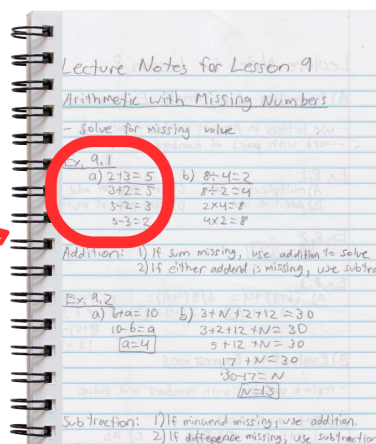 Lecture Notes for Lesson 9
Arithmetic with Missing Numbers
- Solve for missing value
Ex. 9.1
a) 2+3=5 b) 8÷4=2
3+2=5 8÷2=4
5-2=3 2×4=8
5-3=2 4×2=8
Addition: 1) If sum missing, use addition to solve
2) If either addend is missing, use subtra
Ex. 9.2
a) 6+a=10 b) 3+N+2+12=30
10-6=a 3+2+12+N=30
a=4 5+12+N=30
17+N=30
30-17=N
N=13
Subtraction: 1) If minuend missing, use addition.
2) If difference missing, use subtraction